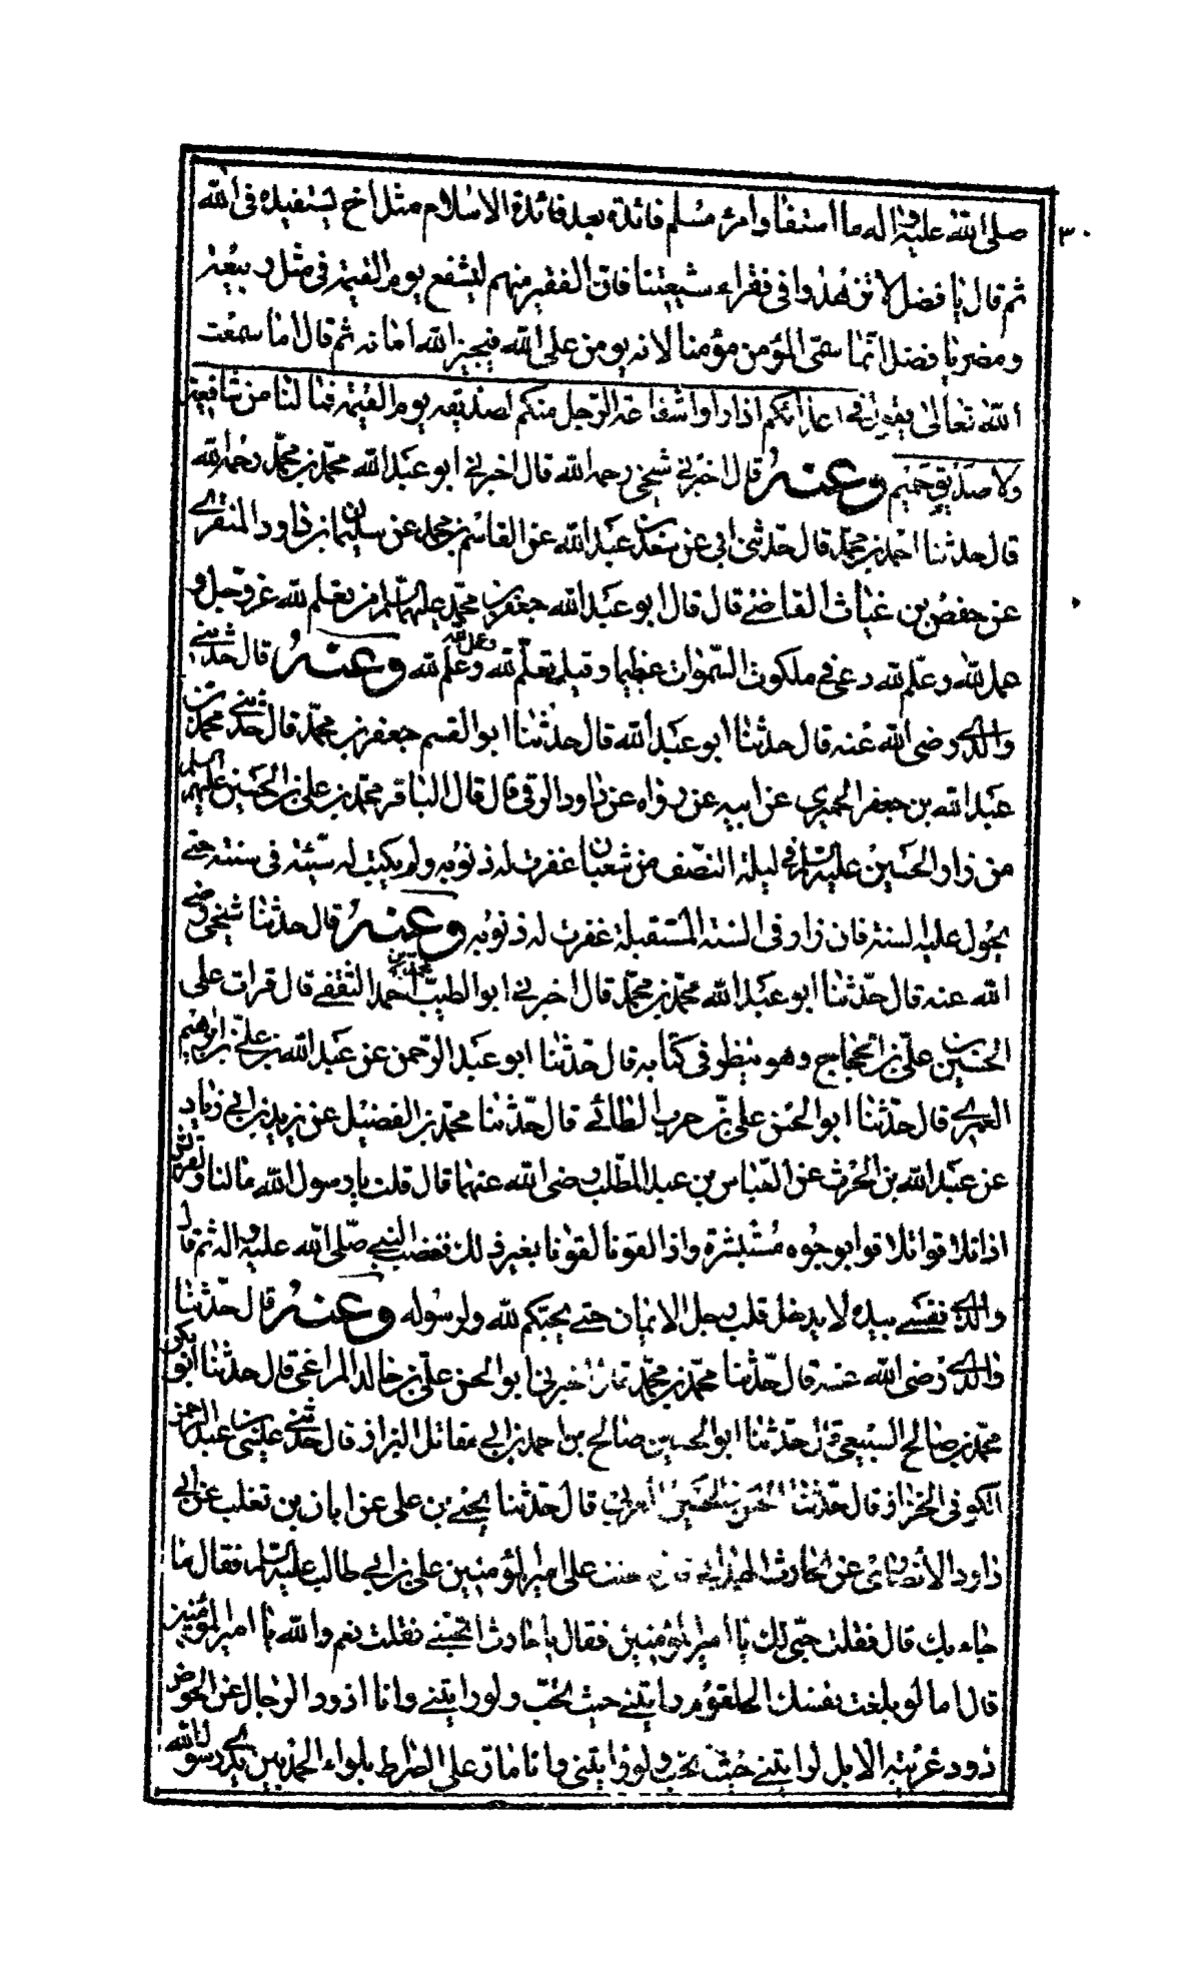 صلى الله عليه واله ما استفاد امرء مسلم فائدة بعد فائدة الاسلام مثل اخ يستفيده فى الله
٣٠
ثم قال يا فضل لا تزهدوا فى فقراء شيعتنا فان الفقير منهم ليشفع يوم القيمة فى مثل ربيعة
و مضر يا فضل انما سمّى المؤمن مؤمنا لانه يومن على الله فيجيز الله امانه ثم قال اما سمعت
الله تعالى يقول فى اعدائكم اذا راوا شفاعة الرّجل منكم لصديقه يوم القيمة فما لنا من شافعين
ولا صديق حميم وعنه قال اخبرنى شيخى رحمه الله قال اخبرنى ابو عبد الله محمّد بن محمّد رحمه الله
قال حدثنا احمد بن محمّد قال حدثنى ابى عن سعد بن عبد الله عن القاسم بن محمد عن سليمان بن داود المنقرى
عن حفص بن غياث القاضى قال قال ابو عبد الله جعفر بن محمّد عليهما السلام من تعلم لله عز وجل و
عمل لله و علّم لله دعى فى ملكوت السّموات عظيما و قيل تعلّم لله وعمل لله وعلّم لله وعنه قال حدثنى
والدى رضى الله عنه قال حدثنا ابو عبد الله قال حدثنا ابو القسم جعفر بن محمّد قال حدثنى محمد بن
عبد الله بن جعفر الحميرى عن ابيه عن رواه عن داود الرقى قال قال الباقر محمّد بن على بن الحسين عليهم السلم
من زار الحسين عليه السلم فى ليلة النصف من شعبان غفرت له ذنوبه ولم يكتب له سيّئة فى سنته حتى
يحول عليه السنة فان زار فى السنة المستقبلة غفرت له ذنوبه وعنه قال حدثنا شيخى رضى
الله عنه قال حدّثنا ابو عبد الله محمّد بن محمّد قال اخبرنى ابو الطيب محمد بن احمد الثقفى قال قرات على
الحسين بن علىّ بن الحجاج وهو ينظر فى كتابه قال حدّثنا ابو عبد الرّحمن عن عبد الله بن علىّ بن ابرهيم
العمرى قال حدّثنا ابو الحسن على بن حرب الطائى قال حدّثنا محمّد بن الفضيل عن يزيد بن ابى زياد
عن عبد الله بن الحرث عن العباس بن عبد المطّلب رضى الله عنهما قال قلت يا رسول الله ما لنا ولقريش
اذا تلاقوا تلاقوا بوجوه مستبشرة واذا لقونا لقونا بغير ذلك فغضب النبى صلّى الله عليه واله ثم قال
والذى نفسى بيده لا يدخل قلب رجل الايمان حتى يحبّكم لله ولرسوله وعنه قال حدّثنا
والدى رضى الله عنه قال حدّثنا محمّد بن محمّد قال اخبرنى ابو الحسن علىّ بن خالد المراغى قال حدثنا ابو بكر
محمّد بن صالح السبيعى قال حدّثنا ابو الحسين صالح بن احمد بن ابى مقاتل البزاز قال حدثنى عيسى بن عبد الرحمن
الكوفى الخزاز قال حدّثنا الحسن بن الحسين العرنى قال حدّثنا يحيى بن على عن ابان بن تغلب عن ابى
داود الانصارى عن الحارث الهمدانى قال دخلت على امير المؤمنين على بن ابى طالب عليه السلم فقال ما
جاء بك قال فقلت حبّى لك يا امير المؤمنين فقال يا حارث اتحبّنى فقلت نعم والله يا امير المؤمنين
قال اما لو بلغت نفسك الحلقوم رايتنى حيث تحبّ ولو رايتنى وانا اذود الرجال عن الحوض
ذود غريبة الابل لرايتنى حيث تحبّ ولو رايتنى وانا مارّ على الصّراط بلواء الحمد بين يدى رسول الله